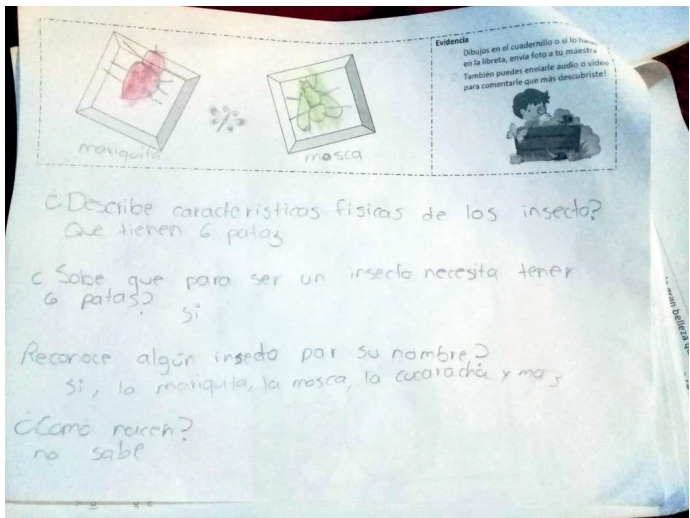 Evidencia
Dibujos en el cuadernillo o si lo
en la libreta, envía foto a tu maestra
También puedes enviarle audio o video
para comentarle que más descubriste!
mariquita
mosca
¿Describe caracteristicas fisicas de los insecto?
Que tienen 6 patas
¿ Sabe que para ser un insecto necesita tener
6 patas?
si
Reconoce algún insecto por su nombre?
Si, la mariquita, la mosca, la cucaracha y mas
¿Como nacen?
no sabe
gran belleza